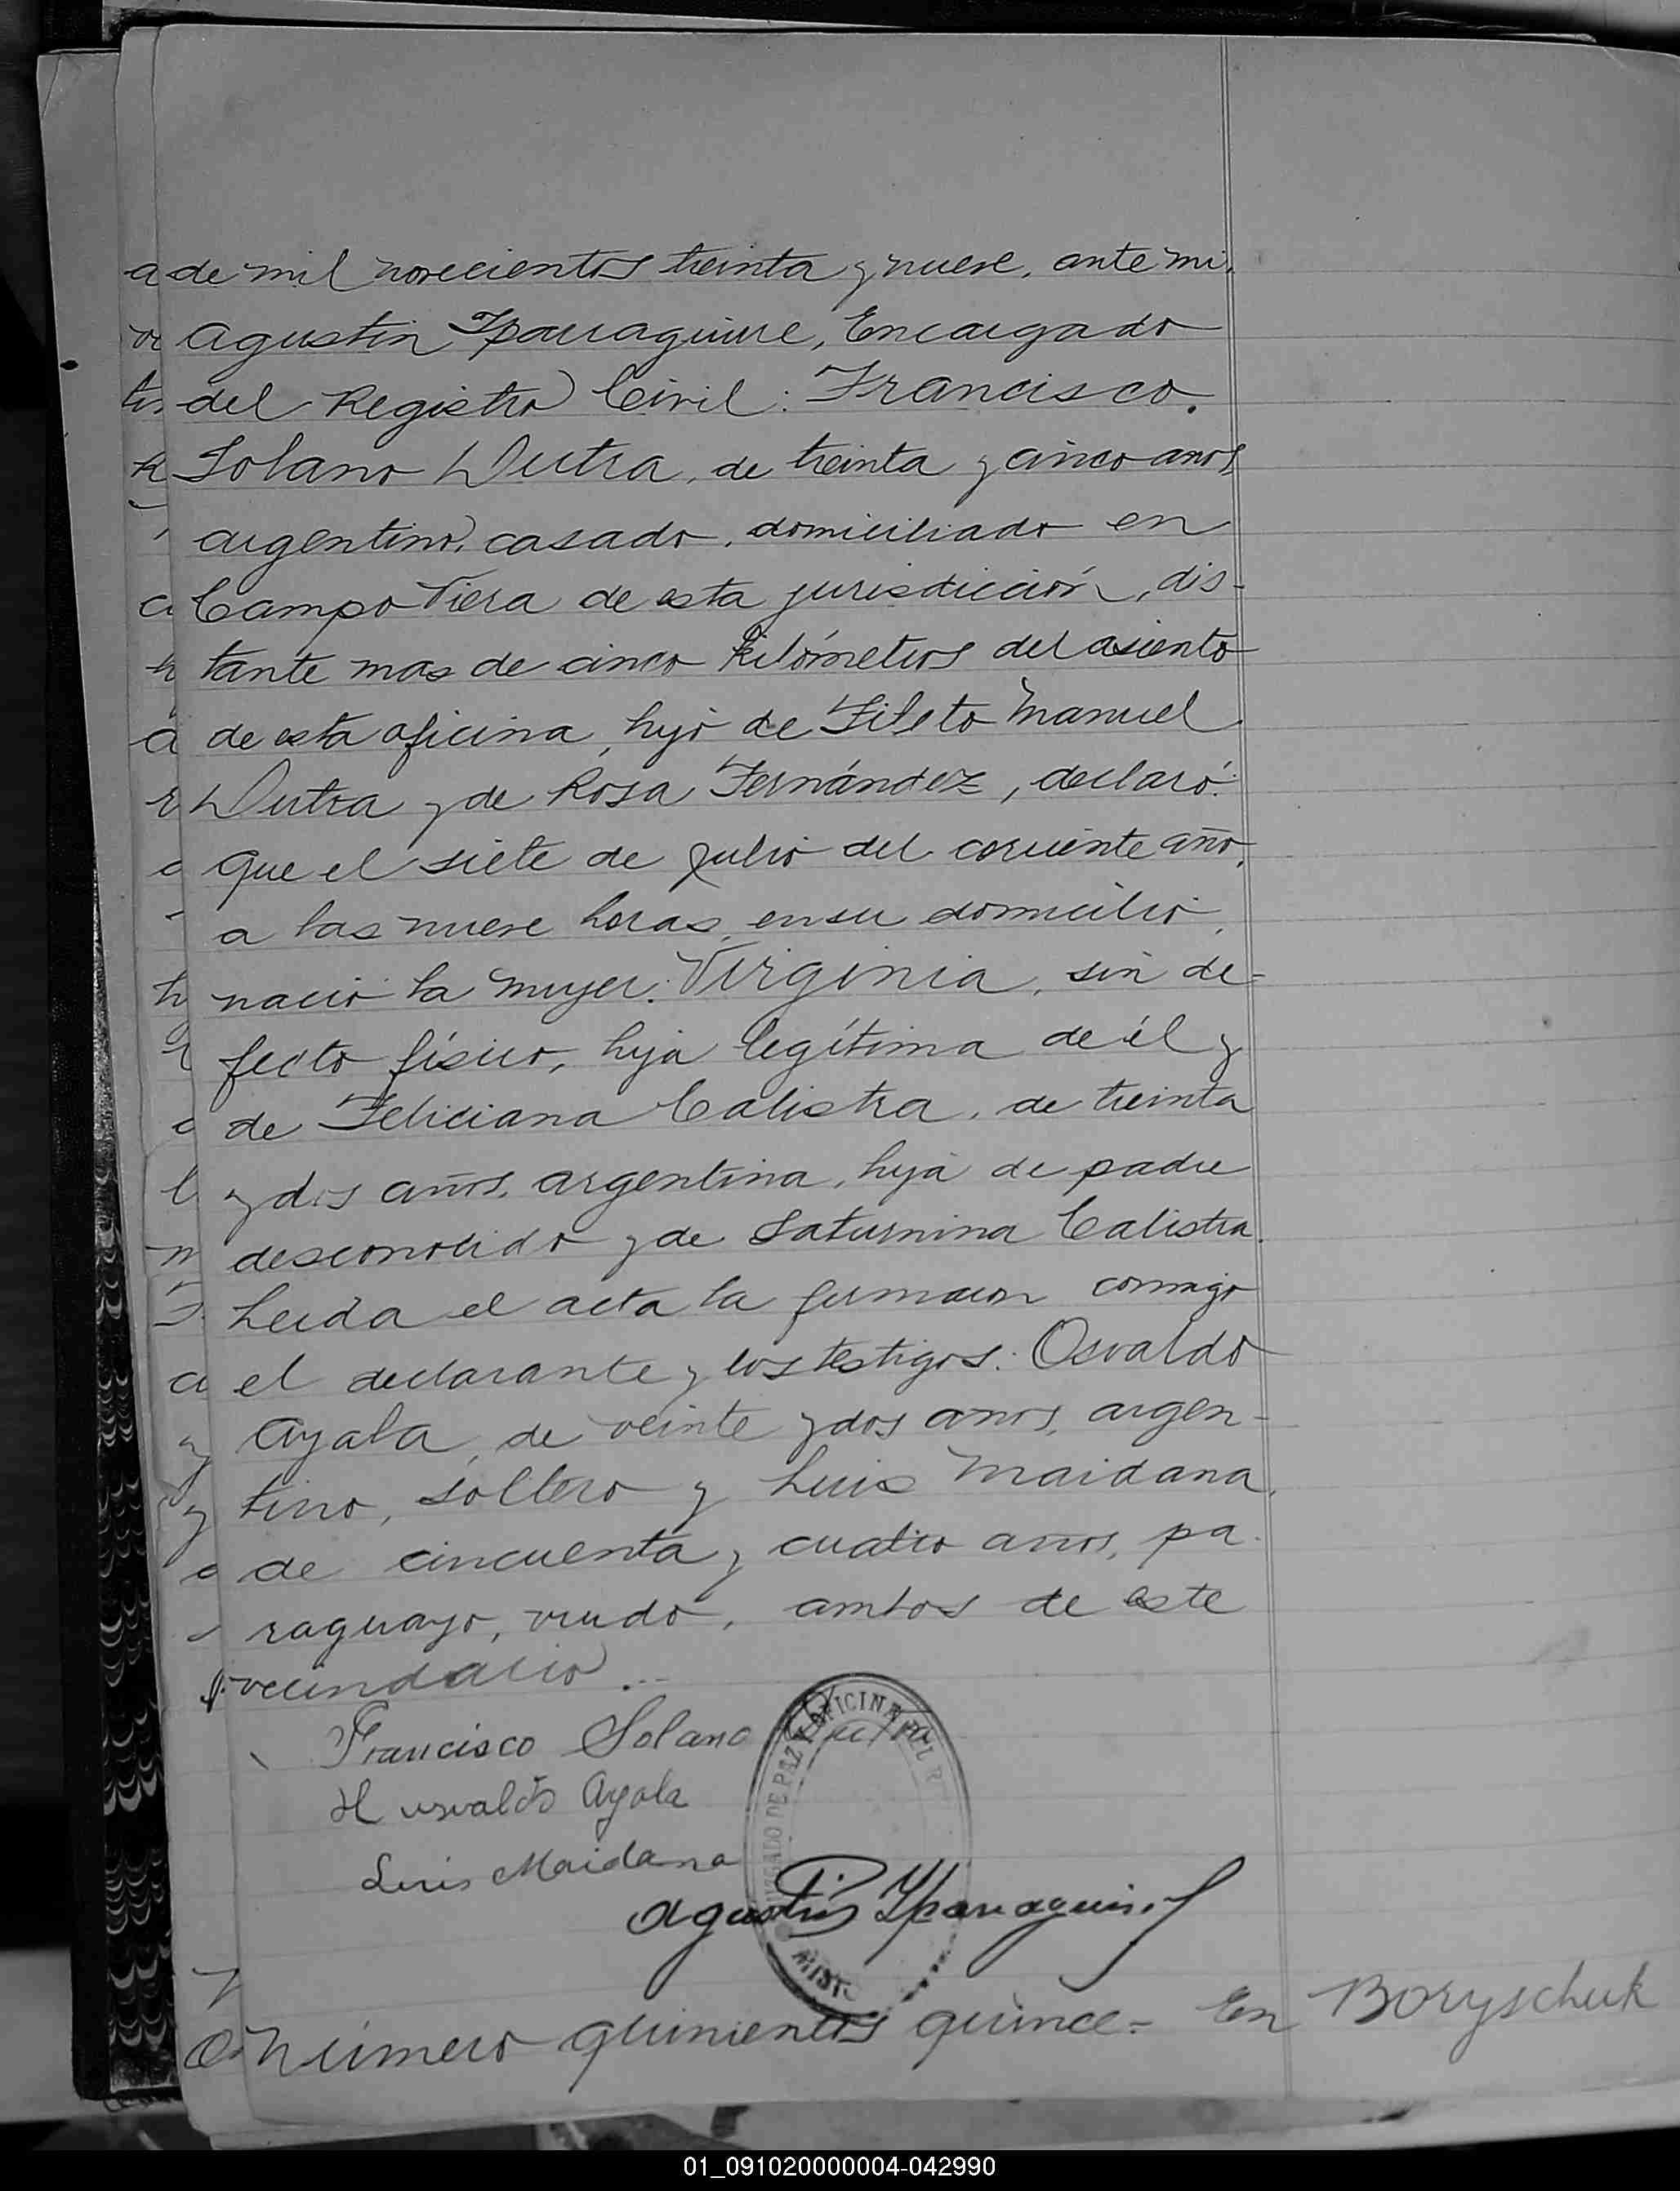 de mil novecientos treinta y nueve, ante mi,
Agustin Yparraguirre, Encargado
del Registro Civil: Francisco.
Solano Dutra, de treinta y cinco anos
argentino, casado, domiciliado en
Campo Viera de esta jurisdicción, dis-
tante mas de cinco kilómetros del asiento
de esta oficina, hijo de Fileto Manuel
Dutra y de Rosa Fernández, declaró:
Que el siete de Julio del corriente año,
a las nueve horas, en su domicilio,
nació la mujer: Virginia, sin de-
fecto físico, hija legítima de él y
de Feliciana Calistra, de treinta
y dos años, argentina, hija de padre
desconocido y de Saturnina Calistra.
Leida el acta la firmaron conmigo
el declarante y los testigos: Osvaldo
Ayala, de veinte y dos anos, argen-
tino, soltero y Luis Maidana,
de cincuenta y cuatro anos, pa-
raguayo, viudo, ambos de este
vecindario...
Francisco Solano Dutra
H usvaldo Ayala
Luis Maidana
JUZGADO DE PAZ Y OFICINA DEL R
Agustin Yparraguirre
Número quinientos quince.- En
Boryschuk
01_091020000004-042990